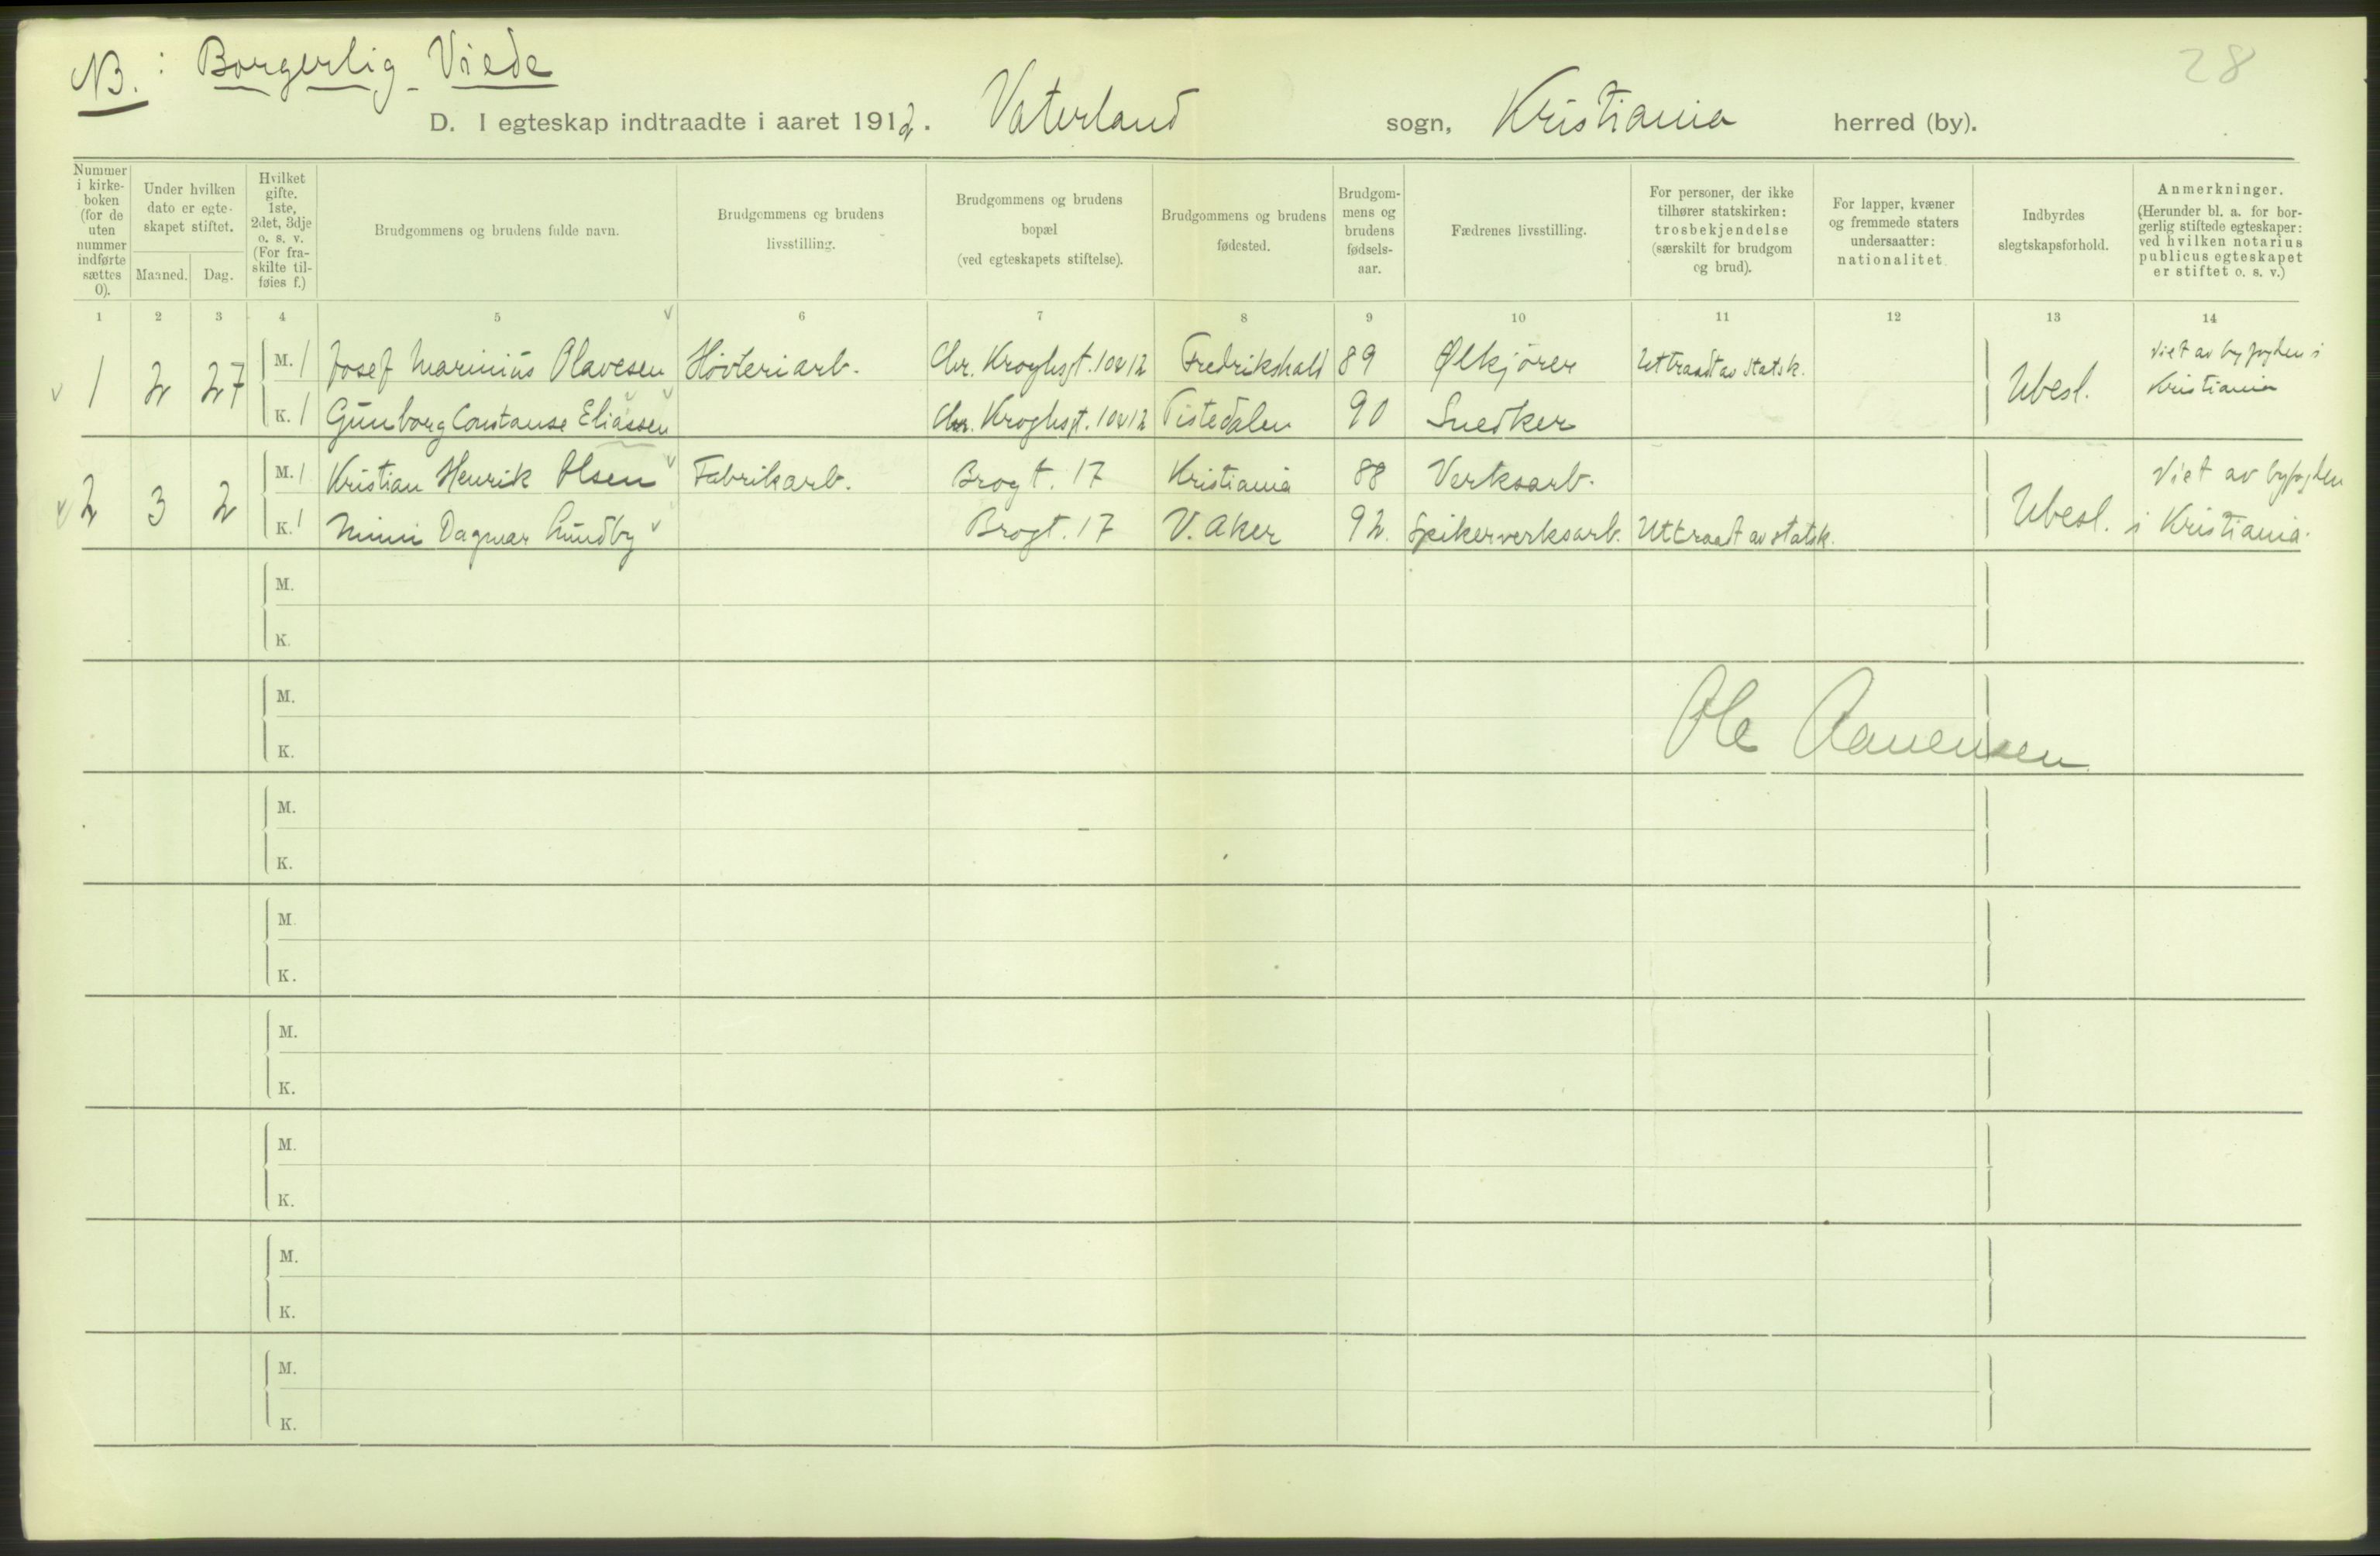 NB. : Borgerlig Viede
28
D. I egteskap indtraadte i aaret 1912. Vaterland sogn, Kristiania herred (by).
Nummer i kirke-boken (for de uten nummer indførte sættes 0).
Under hvilken dato er egte-skapet stiftet.
Maaned. Dag.
Hvilket gifte. 1ste, 2det, 3dje o. s. v. (For fra-skilte til-føies f.)
Brudgommens og brudens fulde navn.
Brudgommens og brudens livsstilling.
Brudgommens og brudens bopæl (ved egteskapets stiftelse).
Brudgommens og brudens fødested.
Brudgom-mens og brudens fødsels-aar.
Fædrenes livsstilling.
For personer, der ikke tilhører statskirken: trosbekjendelse (særskilt for brudgom og brud).
For lapper, kvæner og fremmede staters undersaatter: nationalitet
Indbyrdes slegtskapsforhold.
Anmerkninger. (Herunder bl. a. for bor-gerlig stiftede egteskaper: ved hvilken notarius publicus egteskapet er stiftet o. s. v.)
1 2 3 4 5 6 7 8 9 10 11 12 13 14
1 2 27 M. 1 Josef Marinius Olavesen Høvleriarb. Chr. Kroghsgt. 10 12 Fredrikshald 89 Ølkjører Uttraadt av statsk. Ubesl. Viet av byfogden i Kristiania
K. 1 Gunborg Constanse Eliassen Chr. Kroghsgt. 10 12 Tistedalen 90 Snedker
2 3 2 M. 1 Kristian Henrik Olsen Fabrikarb. Brogt. 17 Kristiania 88 Verksarb. Ubesl. Viet av byfogden i Kristiania.
K. 1 Mimi Dagmar Lundby Brogt. 17 V. Aker 92. Spikerverksarb. Uttraadt av statsk.
M.
K.
M.
Ole Aanensen
K.
M.
K.
M.
K.
M.
K.
M.
K.
M.
K.
M.
K.